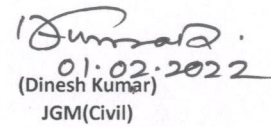 DKumar.
01.02.2022
(Dinesh Kumar)
JGM(Civil)